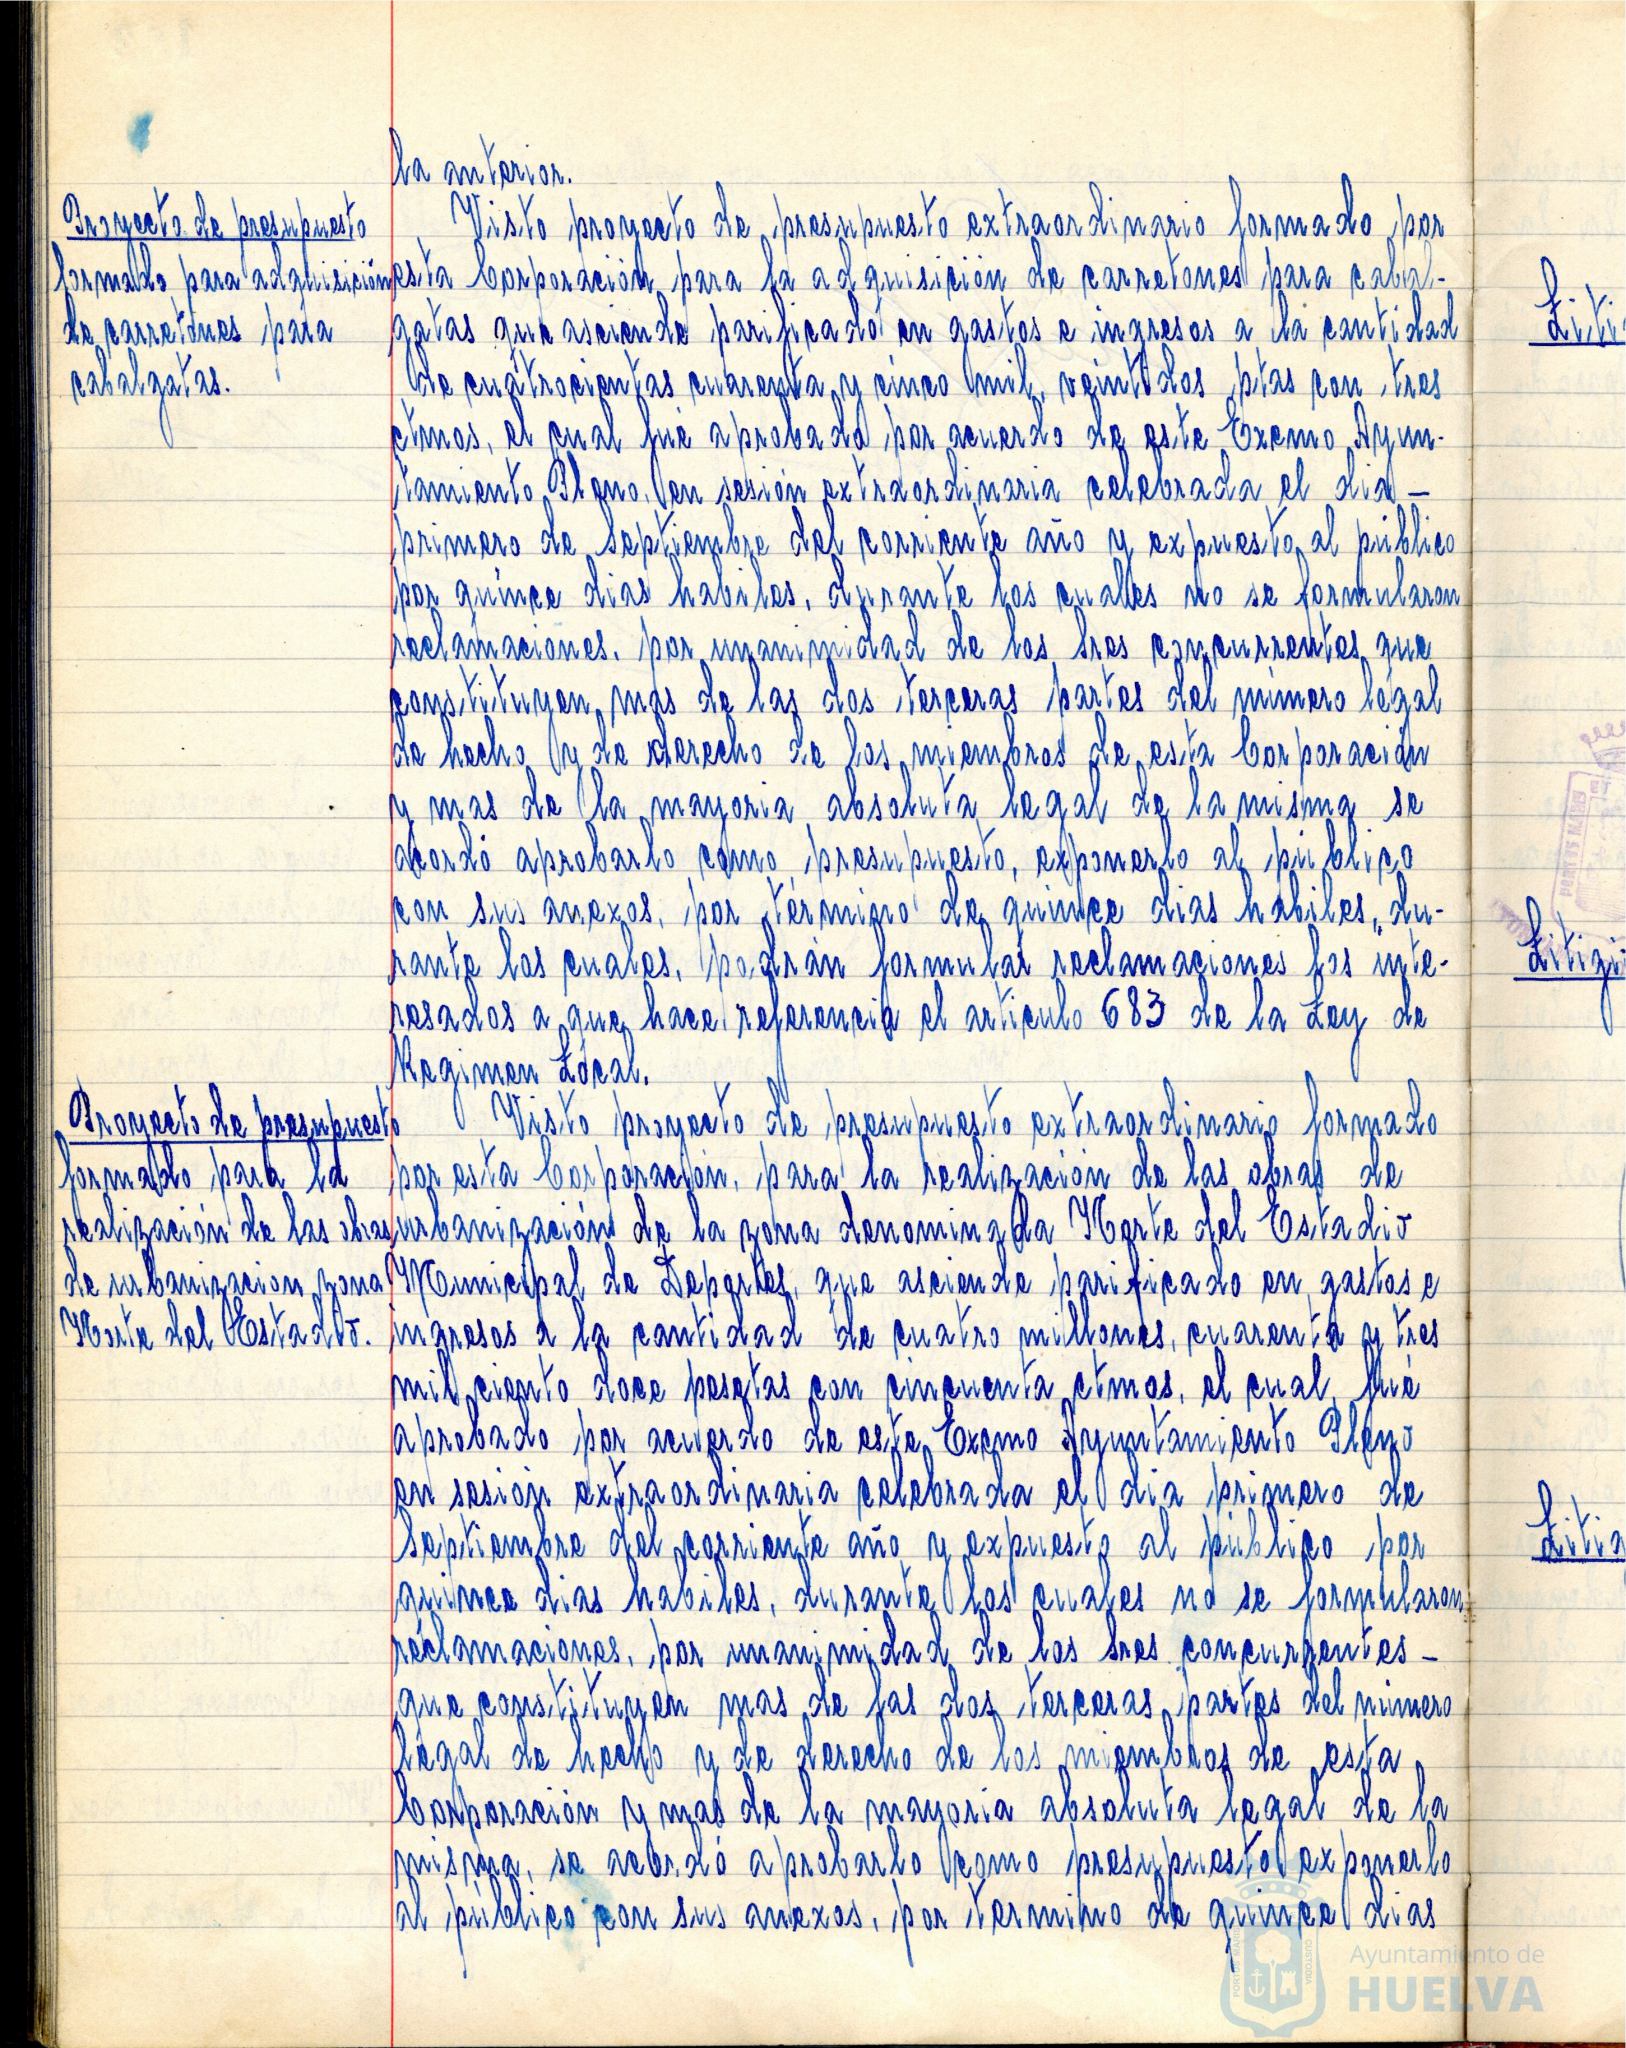 la anterior.
Proyecto de presupuesto
formado para adquisición
de carretones para
cabalgatas.
Visto proyecto de presupuesto extraordinario formado por
esta Corporación para la adquisición de carretones para cabal-
gatas que asciende parificado en gastos e ingresos a la cantidad
de cuatrocientas cuarenta y cinco mil, veintidos ptas con tres
ctmos, el cual fué aprobado por acuerdo de este Excmo Ayun-
tamiento Pleno, en sesión extraordinaria celebrada el dia -
primero de Septiembre del corriente año y expuesto al público
por quince dias habiles, durante los cuales no se formularon
reclamaciones, por unanimidad de los sres concurrentes que
constituyen mas de las dos terceras partes del número legal
de hecho y de derecho de los miembros de esta Corporación
y mas de la mayoria absoluta legal de la misma se
acordó aprobarlo como presupuesto, exponerlo al público
con sus anexos, por término de quince dias habiles, du-
rante los cuales, podrán formular reclamaciones los inte-
resados a que hace referencia el articulo 683 de la Ley de
Regimen Local.
Proyecto de presupuesto
formado para la
realización de las obras
de urbanizacion zona
Norte del Estadio.
Visto proyecto de presupuesto extraordinario formado
por esta Corporación, para la realización de las obras de
urbanización de la zona denominada Norte del Estadio
Municipal de Deportes, que asciende parificado en gastos e
ingresos a la cantidad de cuatro millones, cuarenta y tres
mil ciento doce pesetas con cincuenta ctmos, el cual fué
aprobado por acuerdo de este Excmo Ayuntamiento Pleno
en sesión extraordinaria celebrada el dia primero de
Septiembre del corriente año y expuesto al público por
quince dias habiles, durante los cuales no se formularon
reclamaciones, por unanimidad de los sres concurrentes -
que constituyen mas de las dos terceras partes del número
legal de hecho y de derecho de los miembros de esta
Corporación y mas de la mayoria absoluta legal de la
misma, se acordó aprobarlo como presupuesto exponerlo
al público con sus anexos, por termino de quince dias
Ayuntamiento de
HUELVA